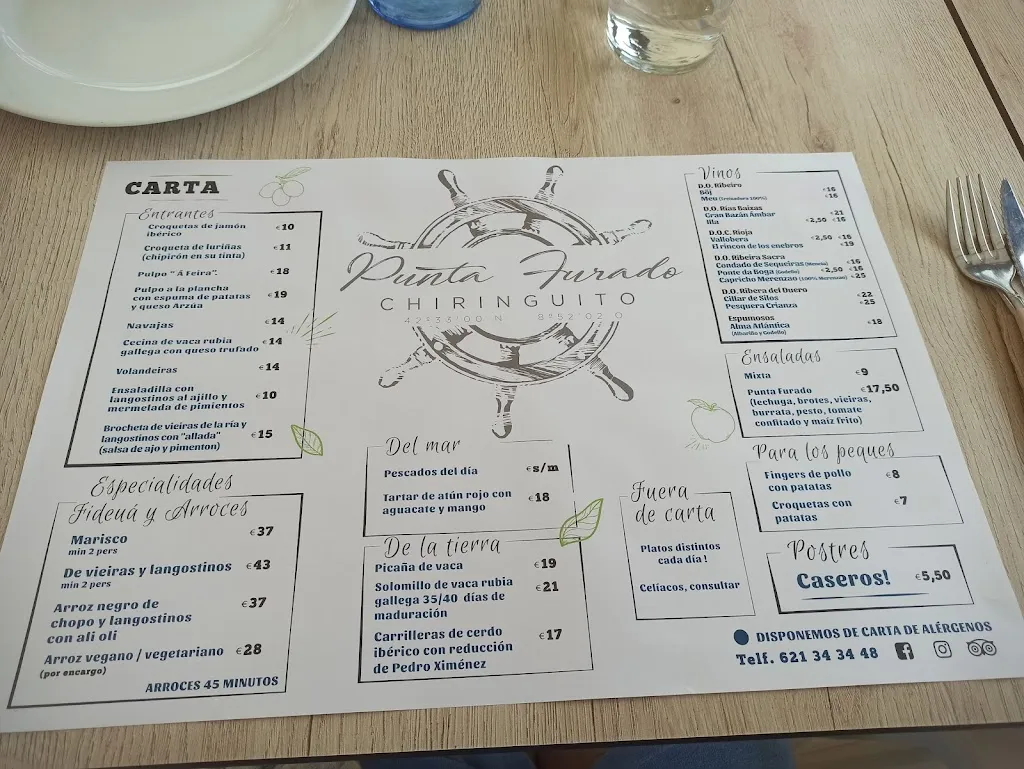 CARTA
Entrantes
Croquetas de jamón €10
ibérico
Croqueta de luriñas €11
(chipirón en su tinta)
Pulpo "Á feira". €18
Pulpo a la plancha
con espuma de patatas €19
y queso Arzúa
Navajas €14
Cecina de vaca rubia €14
gallega con queso trufado
Volandeiras €14
Ensaladilla con
langostinos al ajillo y €10
mermelada de pimientos
Brocheta de vieiras de la ría y
langostinos con "allada" €15
(salsa de ajo y pimenton)
Especialidades
Fideuá y Arroces
Marisco €37
min 2 pers
De vieiras y langostinos €43
min 2 pers
Arroz negro de €37
chopo y langostinos
con ali oli
Arroz vegano / vegetariano €28
(por encargo)
ARROCES 45 MINUTOS
Punta Furado
CHIRINGUITO
42º33'00 N 8º52'02 O
Del mar
Pescados del día €s/m
Tartar de atún rojo con €18
aguacate y mango
De la tierra
Picaña de vaca €19
Solomillo de vaca rubia €21
gallega 35/40 días de
maduración
Carrilleras de cerdo €17
ibérico con reducción
de Pedro Ximénez
Fuera
de carta
Platos distintos
cada día !
Celíacos, consultar
Vinos
D.O. Ribeiro
Bôj €16
Meu (Treixadura 100%) €16
D.O. Rías Baixas
Gran Bazán Ámbar €21
Illa €2,50 €16
D.O.C. Rioja
Vallobera €2,50 €16
El rincon de los enebros €19
D.O. Ribeira Sacra
Condado de Sequeiras (Mencía) €16
Ponte da Boga (Godello) €2,50 €16
Capricho Merenzao (100% Merenzao) €25
D.O. Ribera del Duero
Cillar de Silos €22
Pesquera Crianza €25
Espumosos
Alma Atlántica €18
(Albariño y Godello)
Ensaladas
Mixta €9
Punta Furado €17,50
(lechuga, brotes, vieiras,
burrata, pesto, tomate
confitado y maíz frito)
Para los peques
Fingers de pollo €8
con patatas
Croquetas con €7
patatas
Postres
Caseros! €5,50
DISPONEMOS DE CARTA DE ALÉRGENOS
Telf. 621 34 34 48